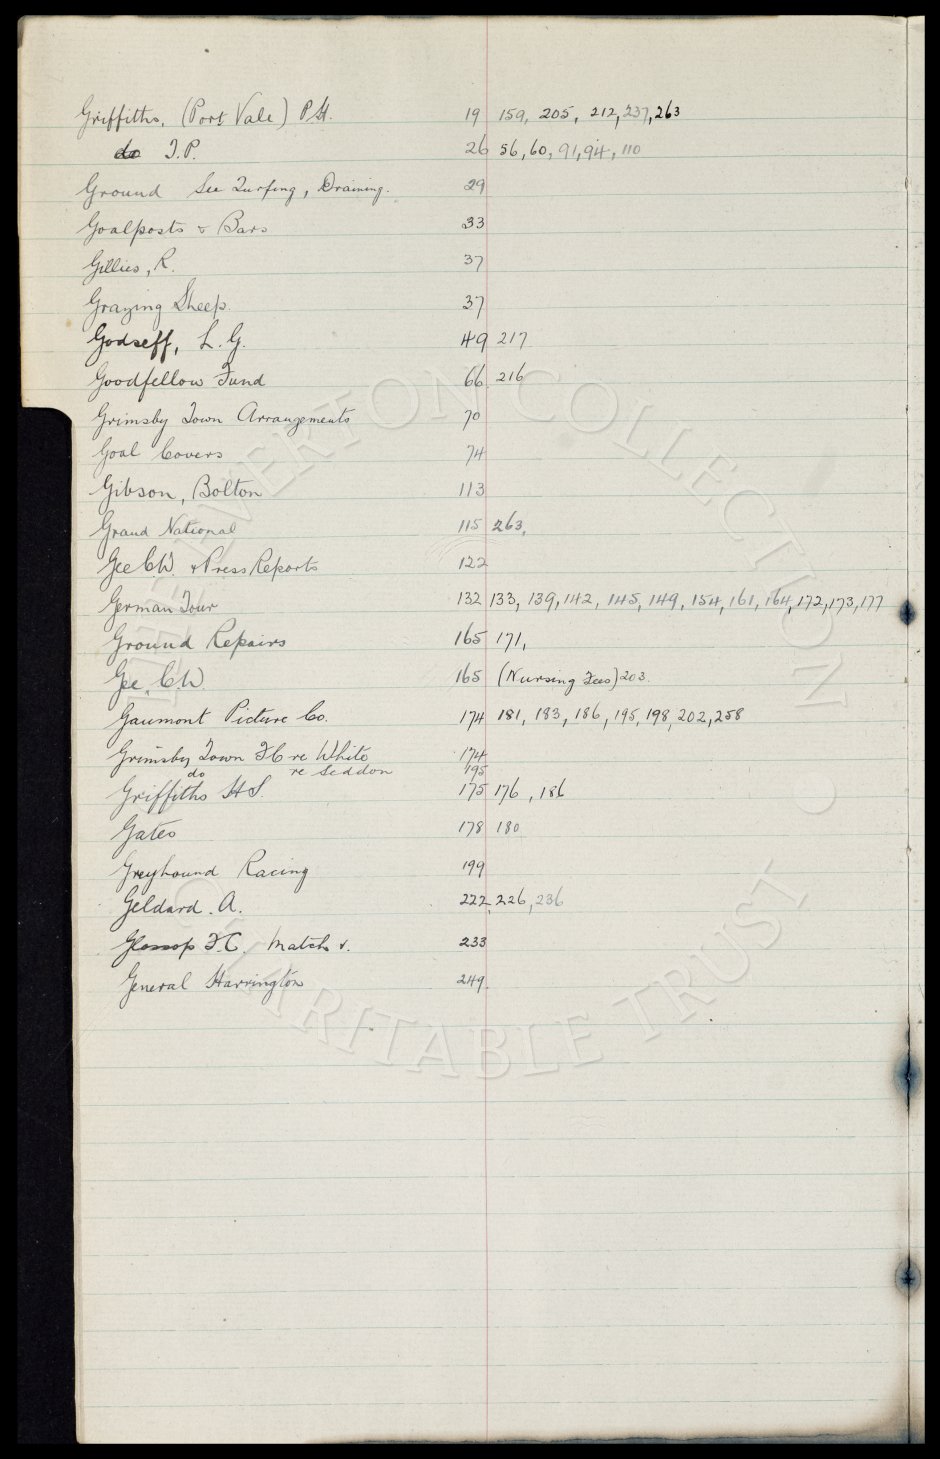 Griffiths, (Port Vale) P.H. 19 159, 205, 212, 237, 263
do T.P. 26 56, 60, 91, 94, 110
Ground See Turfing, Draining. 29
Goalposts & Bars 33
Gillies, R. 37
Grazing Sheep. 37
Godseff, L. G. 49 217
Goodfellow Fund 66 216
Grimsby Town Arrangements 70
Goal Covers 74
Gibson, Bolton 113
Grand National 115 263,
Gee C.W. & Press Reports 122
German Tour 132 133, 139, 142, 145, 149, 154, 161, 164, 172, 173, 177
Ground Repairs 165 171,
Gee, C.W. 165 (Nursing Fees) 203.
Gaumont Picture Co. 174 181, 183, 186, 195, 198, 202, 258
Grimsby Town FC re White 174
do re Seddon 195
Griffiths H.S. 175 176, 186
Gates 178 180
Greyhound Racing 199
Geldard. A. 222, 226, 236
Glossop F.C. Match v. 233
General Harrington 249.
THE EVERTON COLLECTION • CHARITABLE TRUST